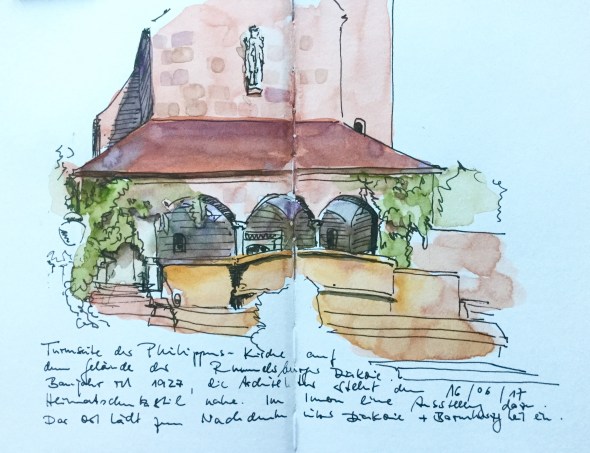 Turmseite der Philippus-Kirche auf
dem Gelände der Rummelsburger Diakonie.
Baujahr 1927, die Architektur steht dem 16/06/17
Heimatschutzstil nahe. Im Innern eine Ausstellung dazu.
Das Ort lädt zum Nachdenken über Diakonie + Barmherzigkeit ein.